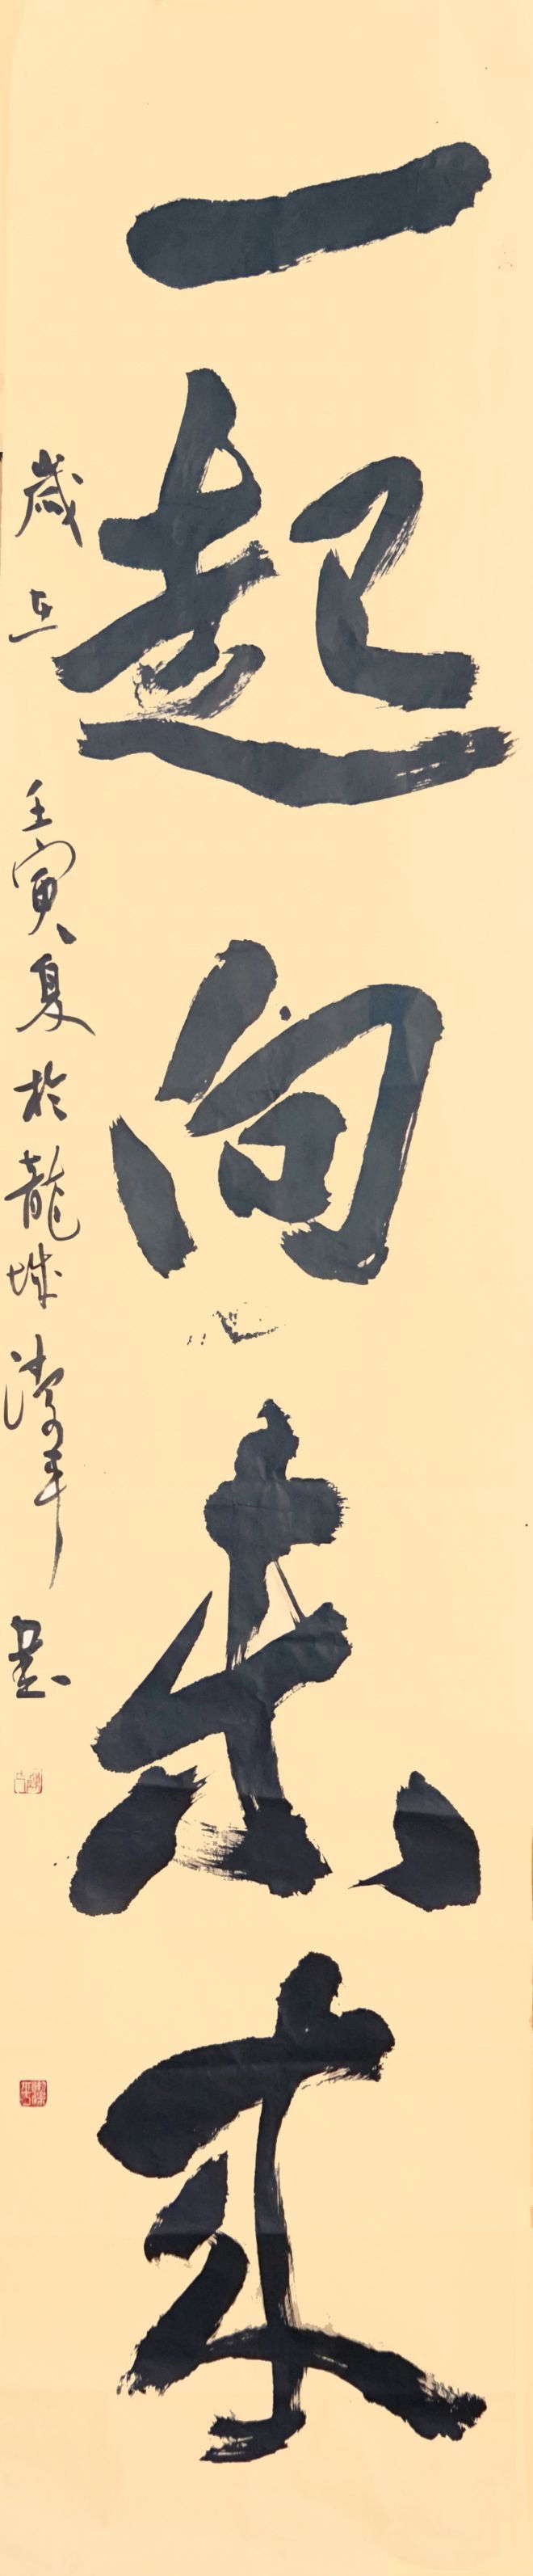 一起向未来
歲在壬寅夏於龍城 書